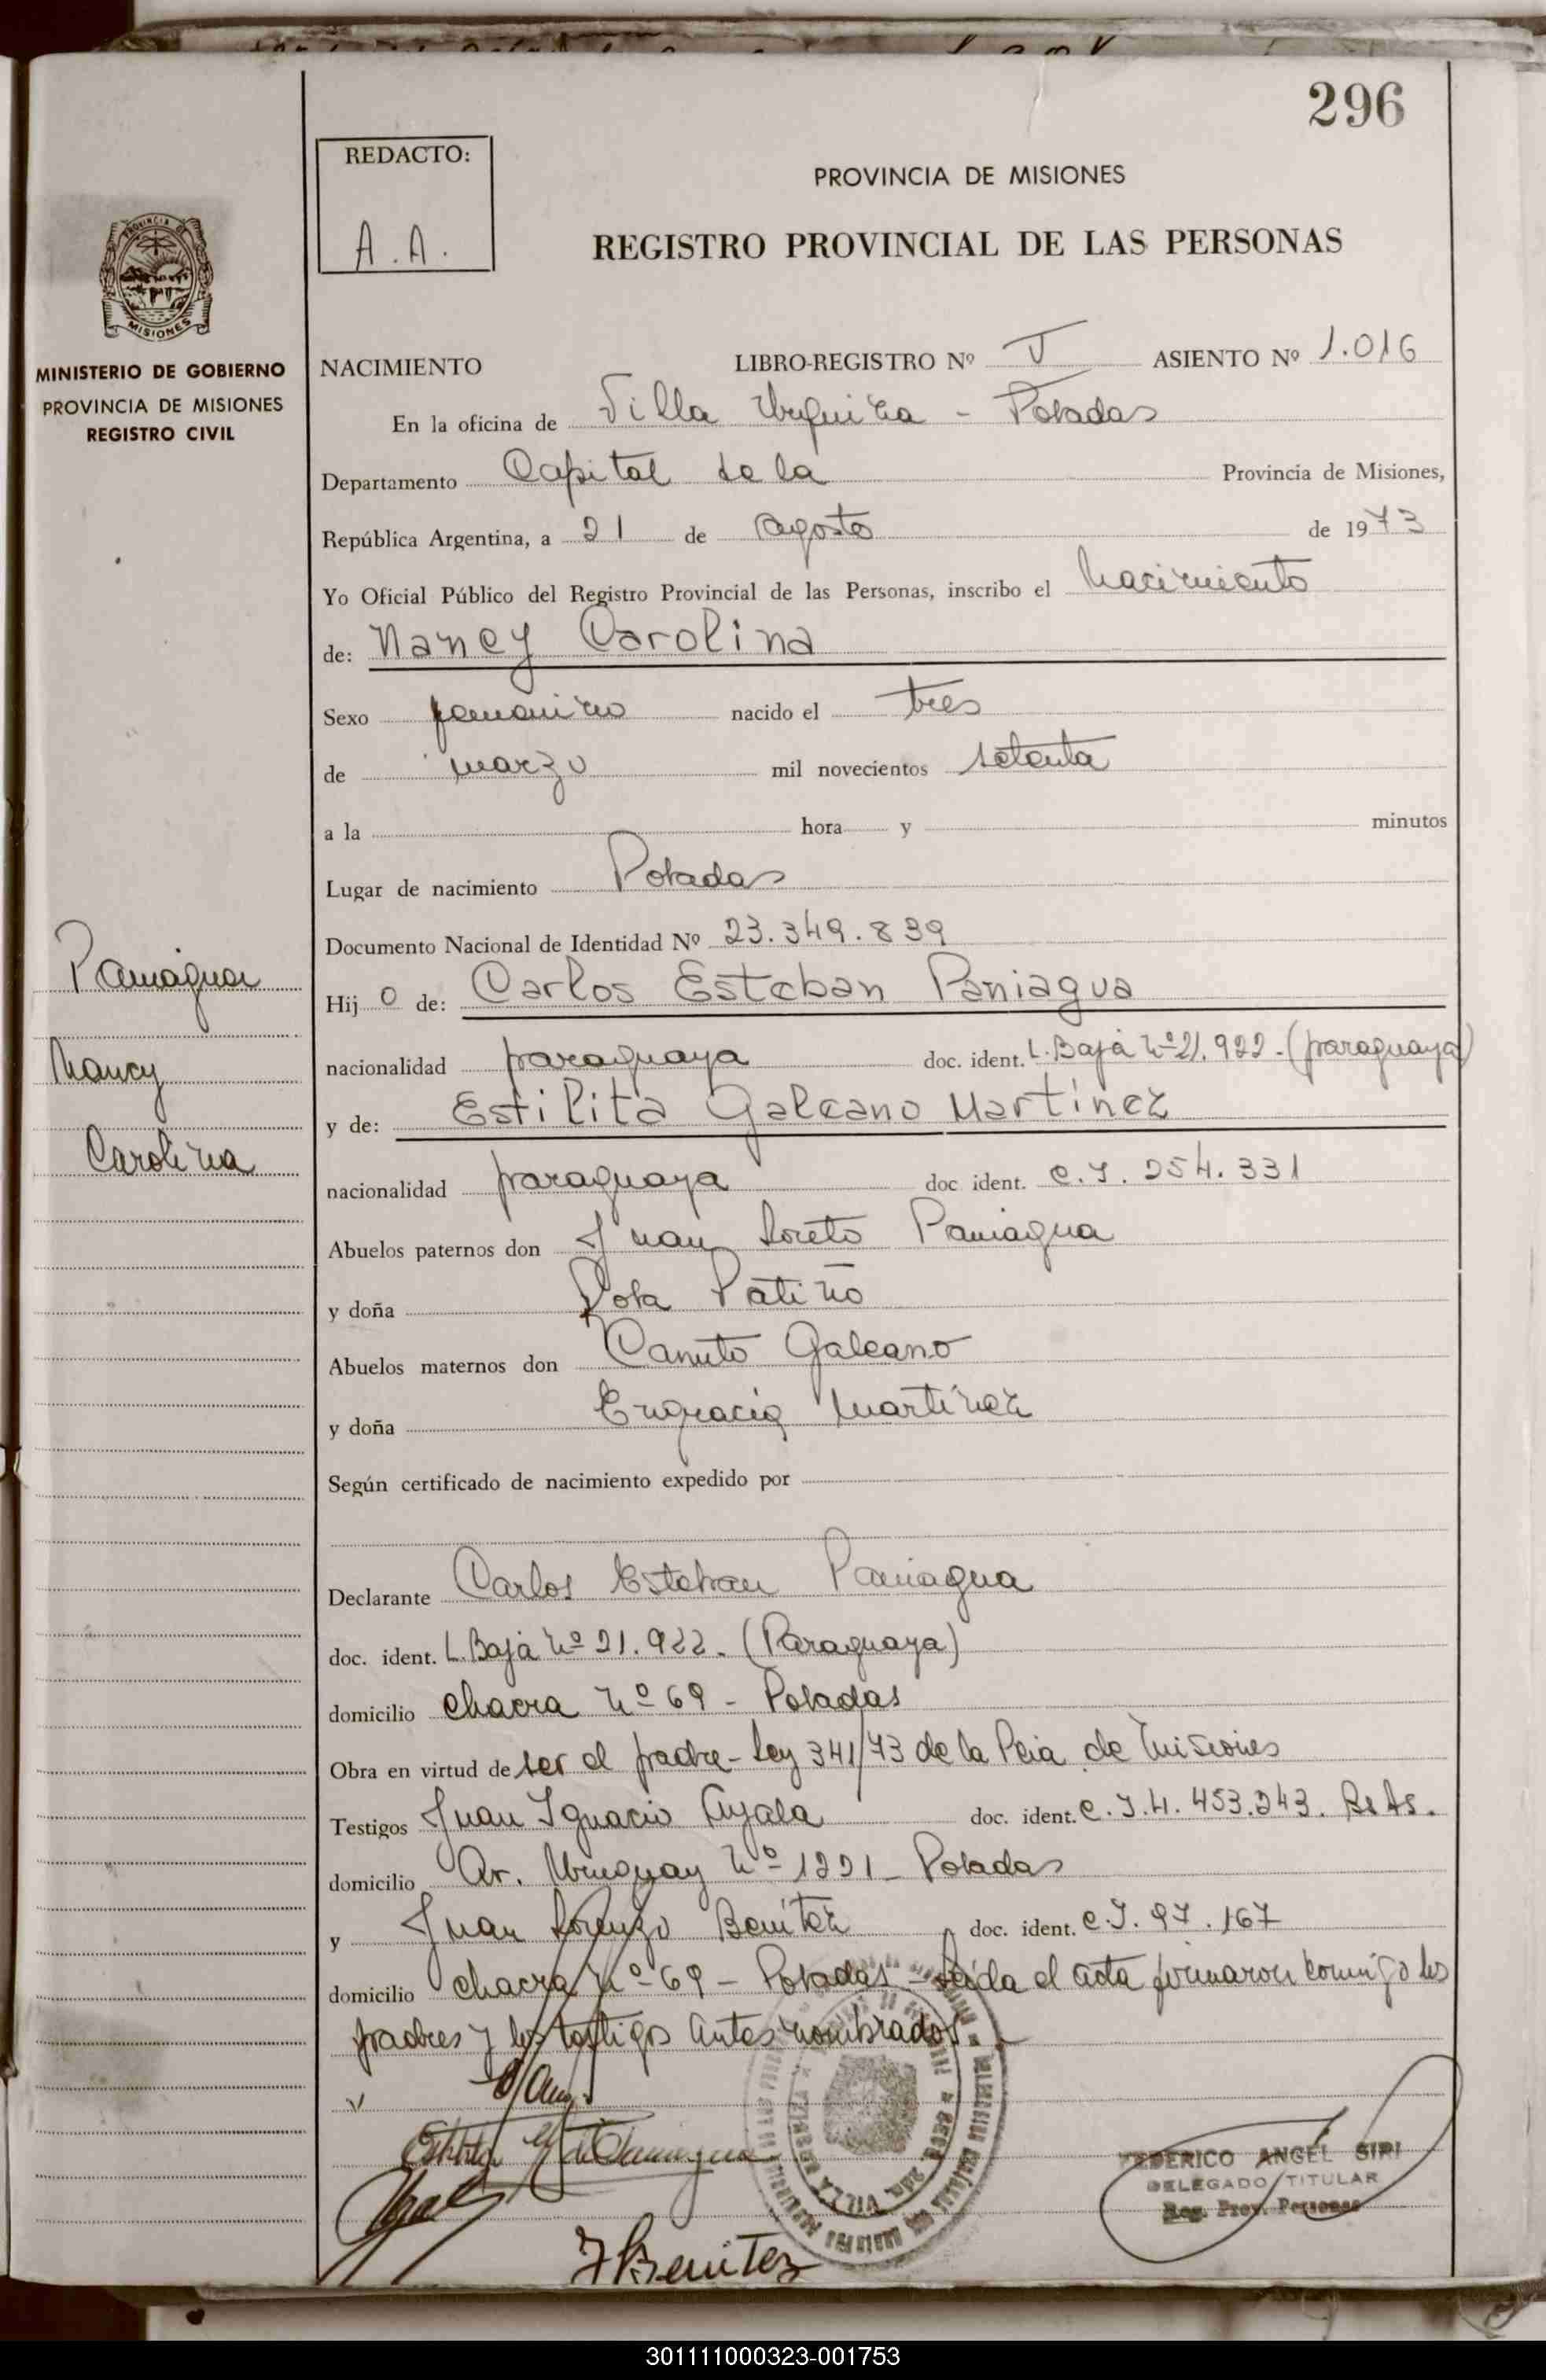 296
REDACTO:
A.A.
PROVINCIA DE MISIONES
REGISTRO PROVINCIAL DE LAS PERSONAS
MINISTERIO DE GOBIERNO
PROVINCIA DE MISIONES
REGISTRO CIVIL
NACIMIENTO LIBRO-REGISTRO Nº V ASIENTO Nº 1.016
En la oficina de Villa Urquiza - Posadas
Departamento Capital de la Provincia de Misiones,
República Argentina, a 21 de agosto de 1973
Yo Oficial Público del Registro Provincial de las Personas, inscribo el nacimiento
de: Nancy Carolina
Sexo femenino nacido el tres
de marzo mil novecientos setenta
a la hora y minutos
Lugar de nacimiento Posadas
Documento Nacional de Identidad Nº 23.349.839
Paniagua
Nancy
Carolina
Hij o de: Carlos Esteban Paniagua
nacionalidad paraguaya doc. ident. L. Baja nº 21.922 - (paraguaya)
y de: Estilita Galeano Martínez
nacionalidad paraguaya doc ident. C.I. 254.331
Abuelos paternos don Juan Loreto Paniagua
y doña Rosa Patiño
Abuelos maternos don Canuto Galeano
y doña Engracia Martínez
Según certificado de nacimiento expedido por
Declarante Carlos Esteban Paniagua
doc. ident. L. Baja nº 21.922. (Paraguaya)
domicilio chacra nº 69 - Posadas
Obra en virtud de ser el padre - Ley 341/73 de la Pcia de Misiones
Testigos Juan Ignacio Ayala doc. ident. C.I. 4.453.243. Bs As.
domicilio Av. Uruguay nº 1221 - Posadas
y Juan Lorenzo Benítez doc. ident. C.I. 97.167
domicilio chacra nº 69 - Posadas - Leída el acta firmaron conmigo los
padres y los testigos antes nombrados. -
J Benitez
VILLA URQUIZA
FEDERICO ANGEL SIRI
DELEGADO TITULAR
Reg. Prov. Personas
301111000323-001753